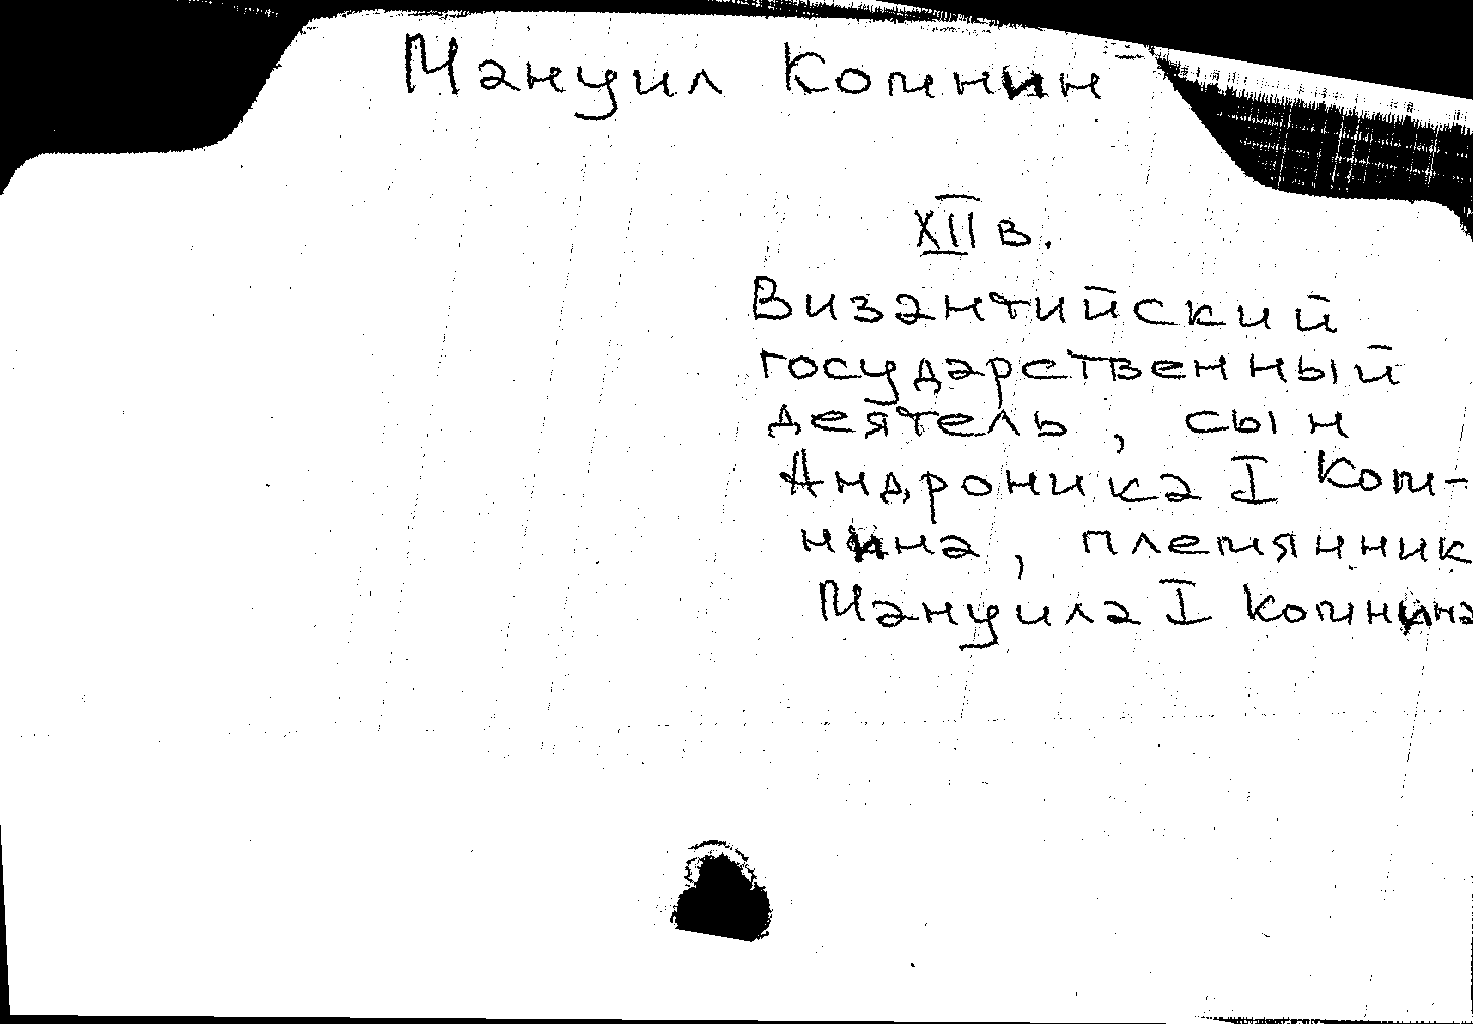 Мануил Комнин
XII в.
Византийский
государственный
деятель, сын
Андроника I Ком-
нина, племянник
Мануила I Комнина